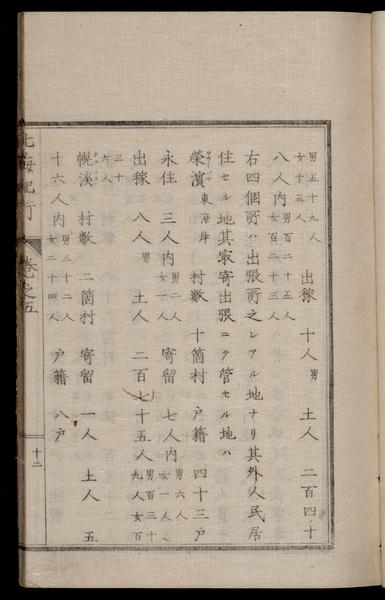 男五十九人
女十五人　出稼　十人男　土人　二百四十
八人内男百二十五人
女百二十三人
右四個所ハ出張所之レアル地ナリ其外人民居
住セル地其最寄出張ニテ管セル地ハ
榮濱　東海岸　村數　十箇村　戸籍　四十三戸
永住　三人内男二人
女一人　寄留　七人内男六人
女一人
出稼　八人男　土人　二百七十五人男百三十
九人女百
三十
六人
幌溪　村數　二箇村　寄留　一人　土人　五
十六人内男三十二人
女二十四人　戸籍　八戸
北海紀行　卷之五　十二